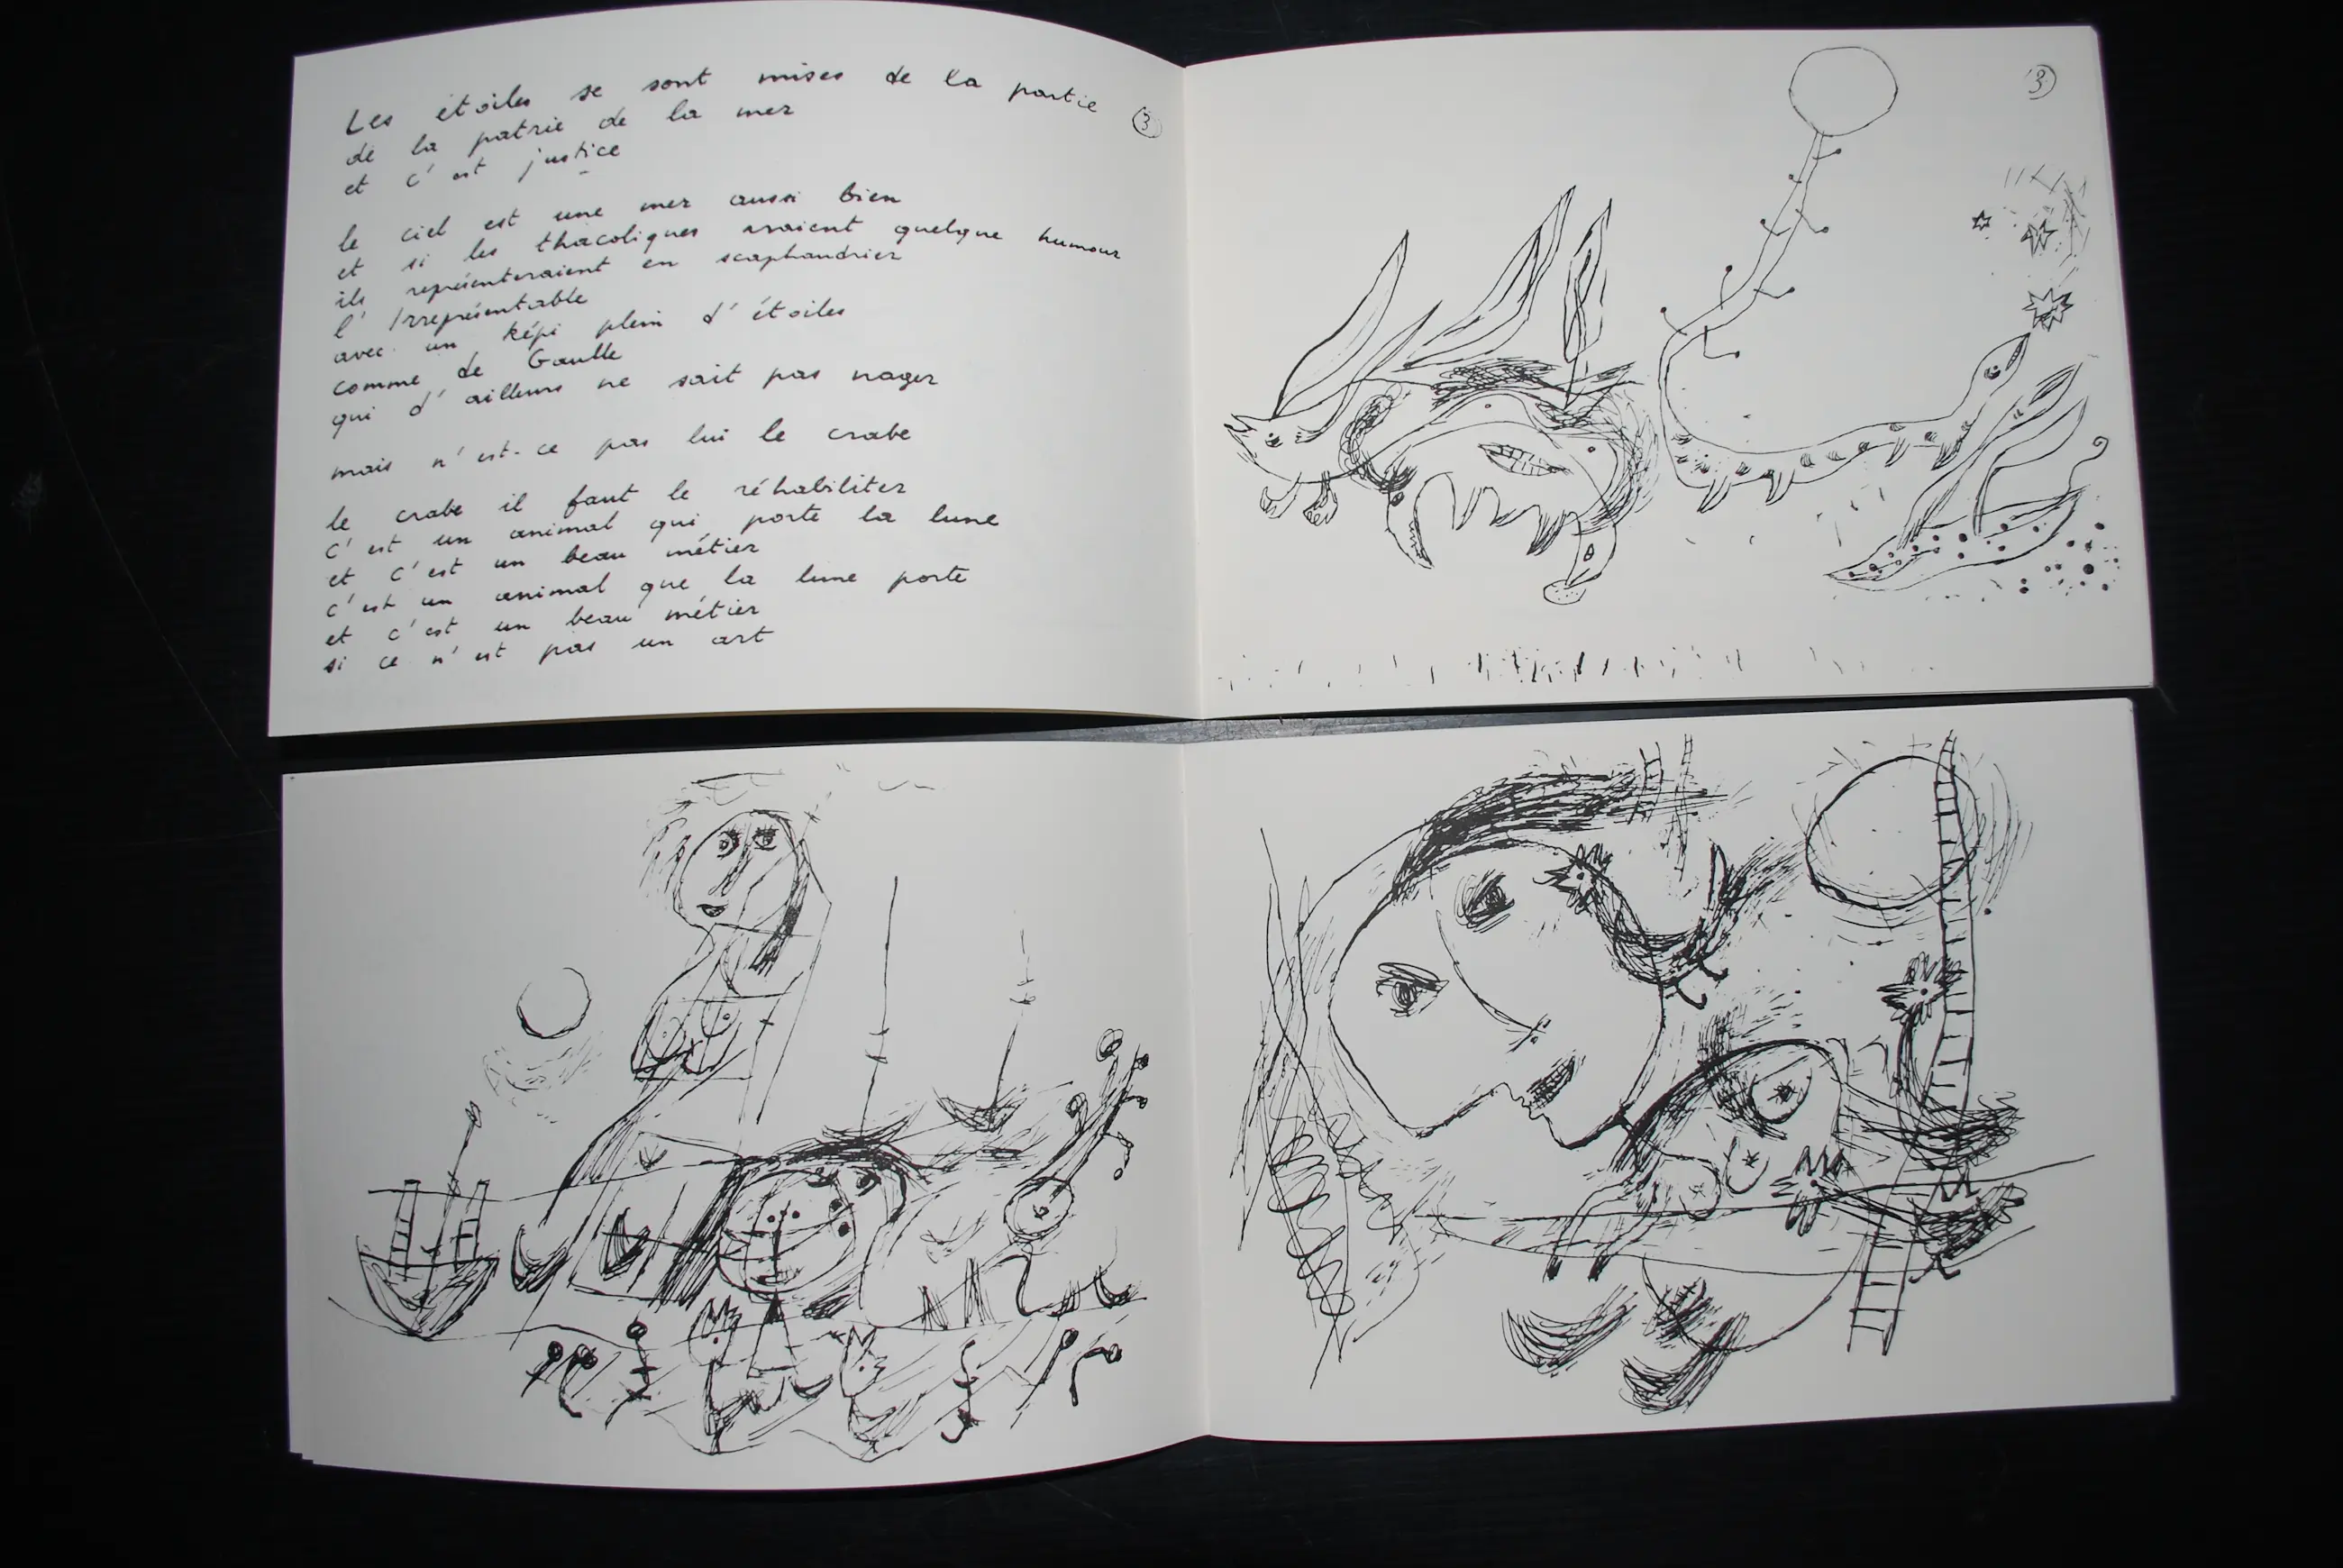 Les étoiles se sont mises de la partie ③
de la patrie de la mer
et c'est justice
le ciel est une mer aussi bien
et si les thacoliques avaient quelque humour
ils représenteraient en scaphandrier
l'Irreprésentable
avec un képi plein d'étoiles
comme de Gaulle
qui d'ailleurs ne sait pas nager
mais n'est-ce pas lui le crabe
le crabe il faut le réhabiliter
c'est un animal qui porte la lune
et c'est un beau métier
c'est un animal que la lune porte
et c'est un beau métier
si ce n'est pas un art
③